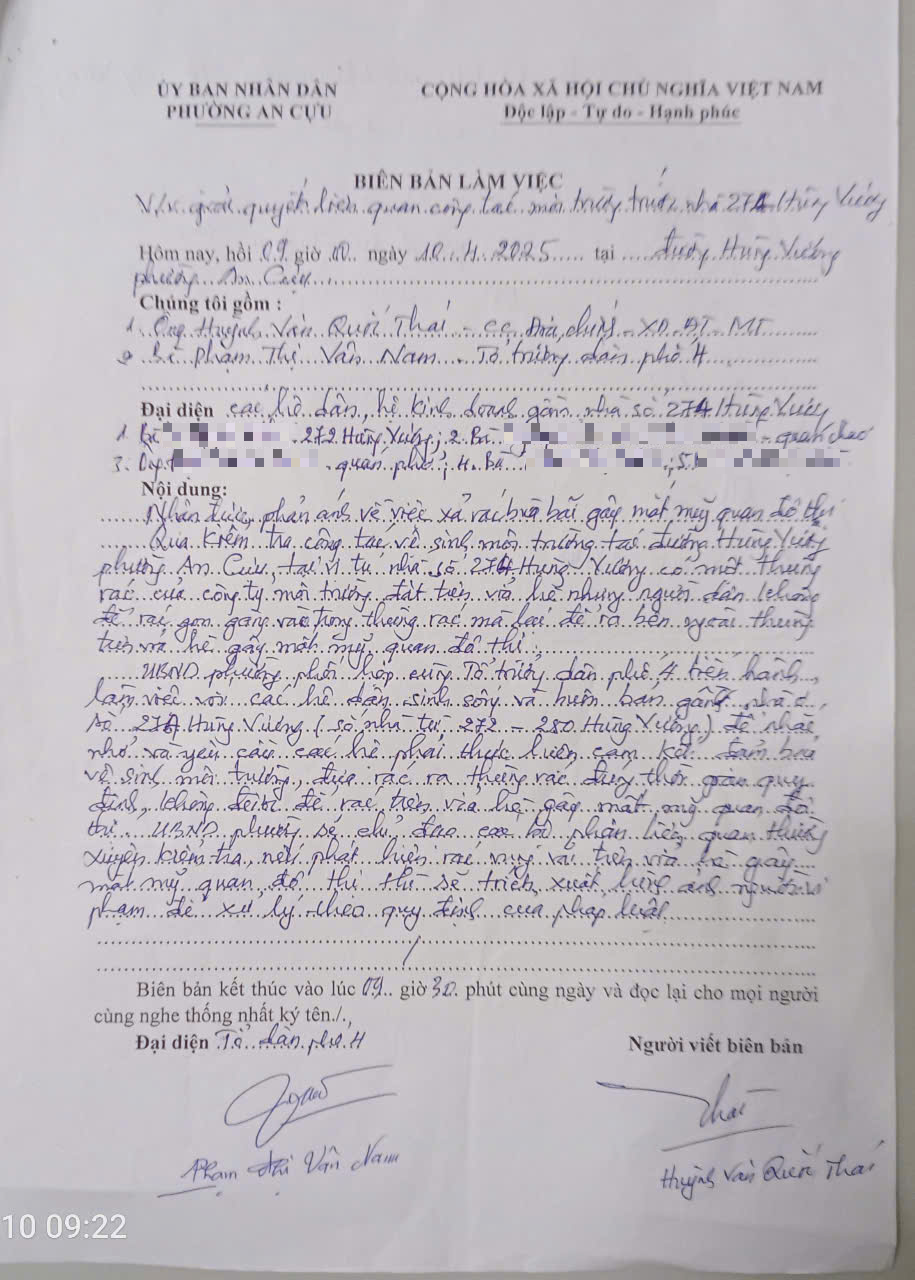 ỦY BAN NHÂN DÂN
PHƯỜNG AN CỰU
CỘNG HÒA XÃ HỘI CHỦ NGHĨA VIỆT NAM
Độc lập - Tự do - Hạnh phúc
BIÊN BẢN LÀM VIỆC
V/v giải quyết liên quan công tác môi trường trước nhà 274 Hùng Vương
Hôm nay, hồi 09 giờ 00 ngày 10.4.2025 tại đường Hùng Vương
phường An Cựu
Chúng tôi gồm :
1. Ông Huỳnh Văn Quới Thái - CC Địa chính - XD. ĐT - MT
2 Bà Phạm Thị Vân Nam - Tổ trưởng dân phố 4
Đại diện các hộ dân, hộ kinh doanh gần nhà số 274 Hùng Vương
1. Bà 272 Hùng Vương; 2. Bà - quán cháo
3. quán phở; 4. Bà ; 5.
Nội dung:
Nhận được phản ánh về việc xả rác bừa bãi gây mất mỹ quan đô thị
Qua kiểm tra công tác vệ sinh môi trường tại đường Hùng Vương
phường An Cựu, tại vị trí nhà số 274 Hùng Vương có một thùng
rác của công ty môi trường đặt trên vỉa hè nhưng người dân không
để rác gọn gàng vào trong thùng rác mà lại để ra bên ngoài thùng
trên vỉa hè gây mất mỹ quan đô thị.
UBND phường phối hợp cùng Tổ trưởng dân phố 4 tiến hành
làm việc với các hộ dân sinh sống và buôn bán gần nhà
số 274 Hùng Vương (số nhà từ 272 - 280 Hùng Vương) để nhắc
nhở và yêu cầu các hộ phải thực hiện cam kết đảm bảo
vệ sinh môi trường, đưa rác ra thùng rác đúng thời gian quy
định, không để rác trên vỉa hè gây mất mỹ quan đô
thị. UBND phường sẽ chỉ đạo các bộ phận liên quan thường
xuyên kiểm tra, nếu phát hiện rác trên vỉa hè gây
mất mỹ quan đô thị thì sẽ trích xuất hình ảnh người vi
phạm để xử lý theo quy định của pháp luật
Biên bản kết thúc vào lúc 09 giờ 30 phút cùng ngày và đọc lại cho mọi người
cùng nghe thống nhất ký tên./.
Đại diện Tổ dân phố 4
Người viết biên bản
Thái
Phạm Thị Vân Nam
Huỳnh Văn Quới Thái
10 09:22